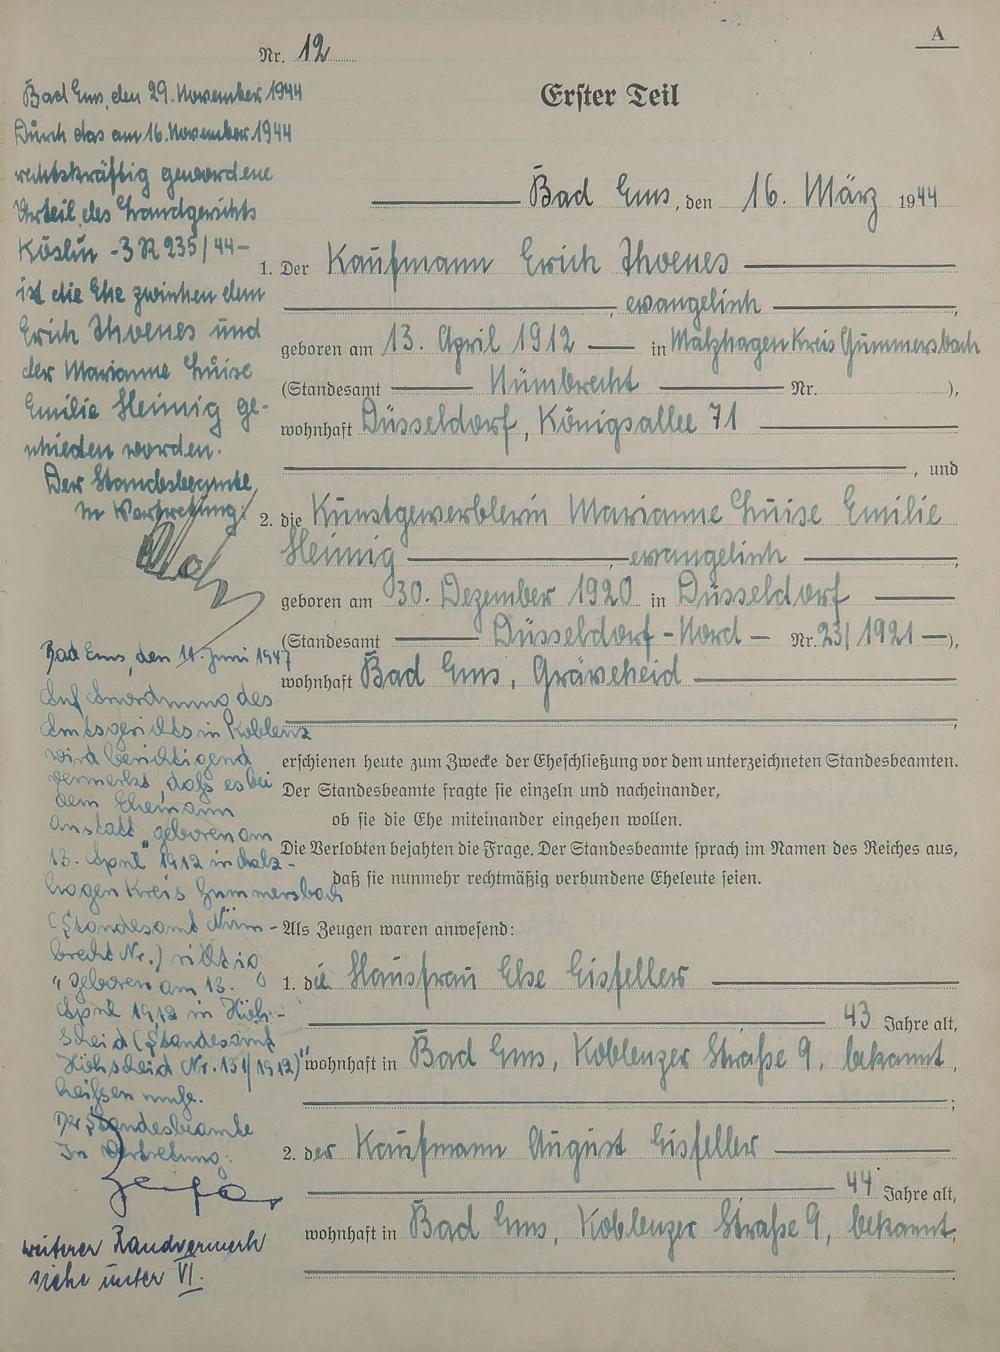 A
Nr. 12
Erster Teil
Bad Ems, den 16. März 1944
1. Der Kaufmann Erich Thoenes
evangelisch,
geboren am 13. April 1912 in Malzhagen Kreis Gummersbach
(Standesamt Nümbrecht Nr. ),
wohnhaft Düsseldorf, Königsallee 71
, und
2. die Kunstgewerblerin Marianne Luise Emilie
Heimig evangelisch,
geboren am 30. Dezember 1920 in Düsseldorf
(Standesamt Düsseldorf-Nord Nr. 23/1921),
wohnhaft Bad Ems, Gräveheid
erschienen heute zum Zwecke der Eheschließung vor dem unterzeichneten Standesbeamten.
Der Standesbeamte fragte sie einzeln und nacheinander,
ob sie die Ehe miteinander eingehen wollen.
Die Verlobten bejahten die Frage. Der Standesbeamte sprach im Namen des Reiches aus,
daß sie nunmehr rechtmäßig verbundene Eheleute seien.
Als Zeugen waren anwesend:
1. die Hausfrau Else Eisfeller
43 Jahre alt,
wohnhaft in Bad Ems, Koblenzer Straße 9, bekannt,
;
2. der Kaufmann August Eisfeller
44 Jahre alt,
wohnhaft in Bad Ems, Koblenzer Straße 9, bekannt,
.
Bad Ems, den 29. November 1944
Durch das am 16. November 1944
rechtskräftig gewordene
Urteil des Landgerichts
Köslin -3 R 235/44-
ist die Ehe zwischen dem
Erich Thoenes und
der Marianne Luise
Emilie Heimig ge-
schieden worden.
Der Standesbeamte
In Vertretung:
Bad Ems, den 11. Juni 1947
Auf Anordnung des
Amtsgerichts in Koblenz
wird berichtigend
vermerkt, daß es bei
dem Ehemann
anstatt "geboren am
13. April 1912 in Malz-
hagen Kreis Gummersbach
(Standesamt Nüm-
brecht Nr.) richtig
"geboren am 13.
April 1912 in Höh-
scheid (Standesamt
Höhscheid Nr. 151/1912)"
heißen muß.
Der Standesbeamte
In Vertretung:
weiterer Randvermerk
siehe unter VI.